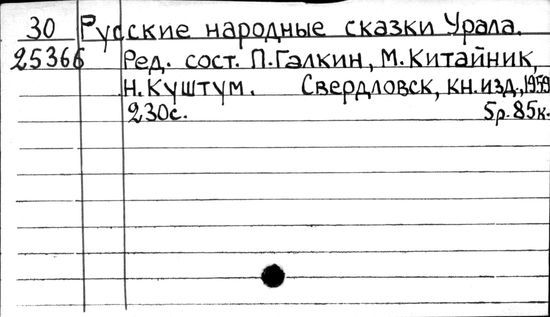 30 Русские народные сказки Урала.
25366 Ред. сост. П.Галкин, М.Китайник,
Н.Куштум. Свердловск, кн.изд.,1959
230с. 5р.85к.